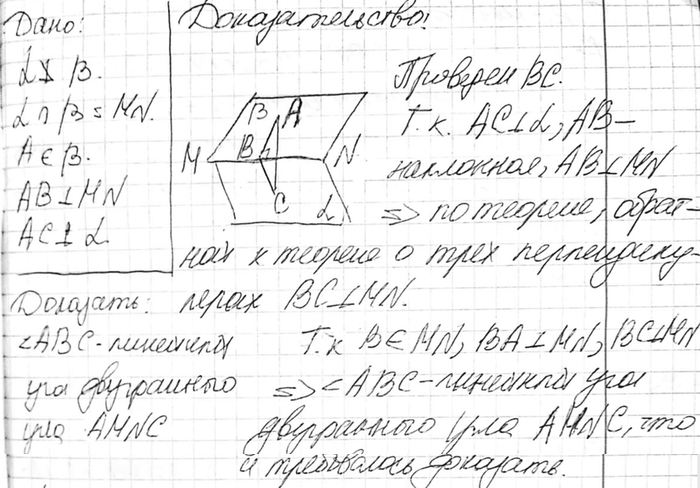 Дано:
α ⊥̸ β.
α ∩ β = MN.
A ∈ β.
AB ⊥ MN
AC ⊥ α.
Доказать:
∠ABC - линейный
угол двугранного
угла AMNC
Доказательство!
β
A
B
M
N
C
α
Проведем BC.
Т.к. AC ⊥ α, AB -
наклонная, AB ⊥ MN
=> по теореме, обрат-
ной к теореме о трех перпендику-
лярах BC ⊥ MN.
Т.к B ∈ MN, BA ⊥ MN, BC ⊥ MN
=> ∠ABC - линейный угол
двугранного угла AMNC, что
и требовалось доказать.